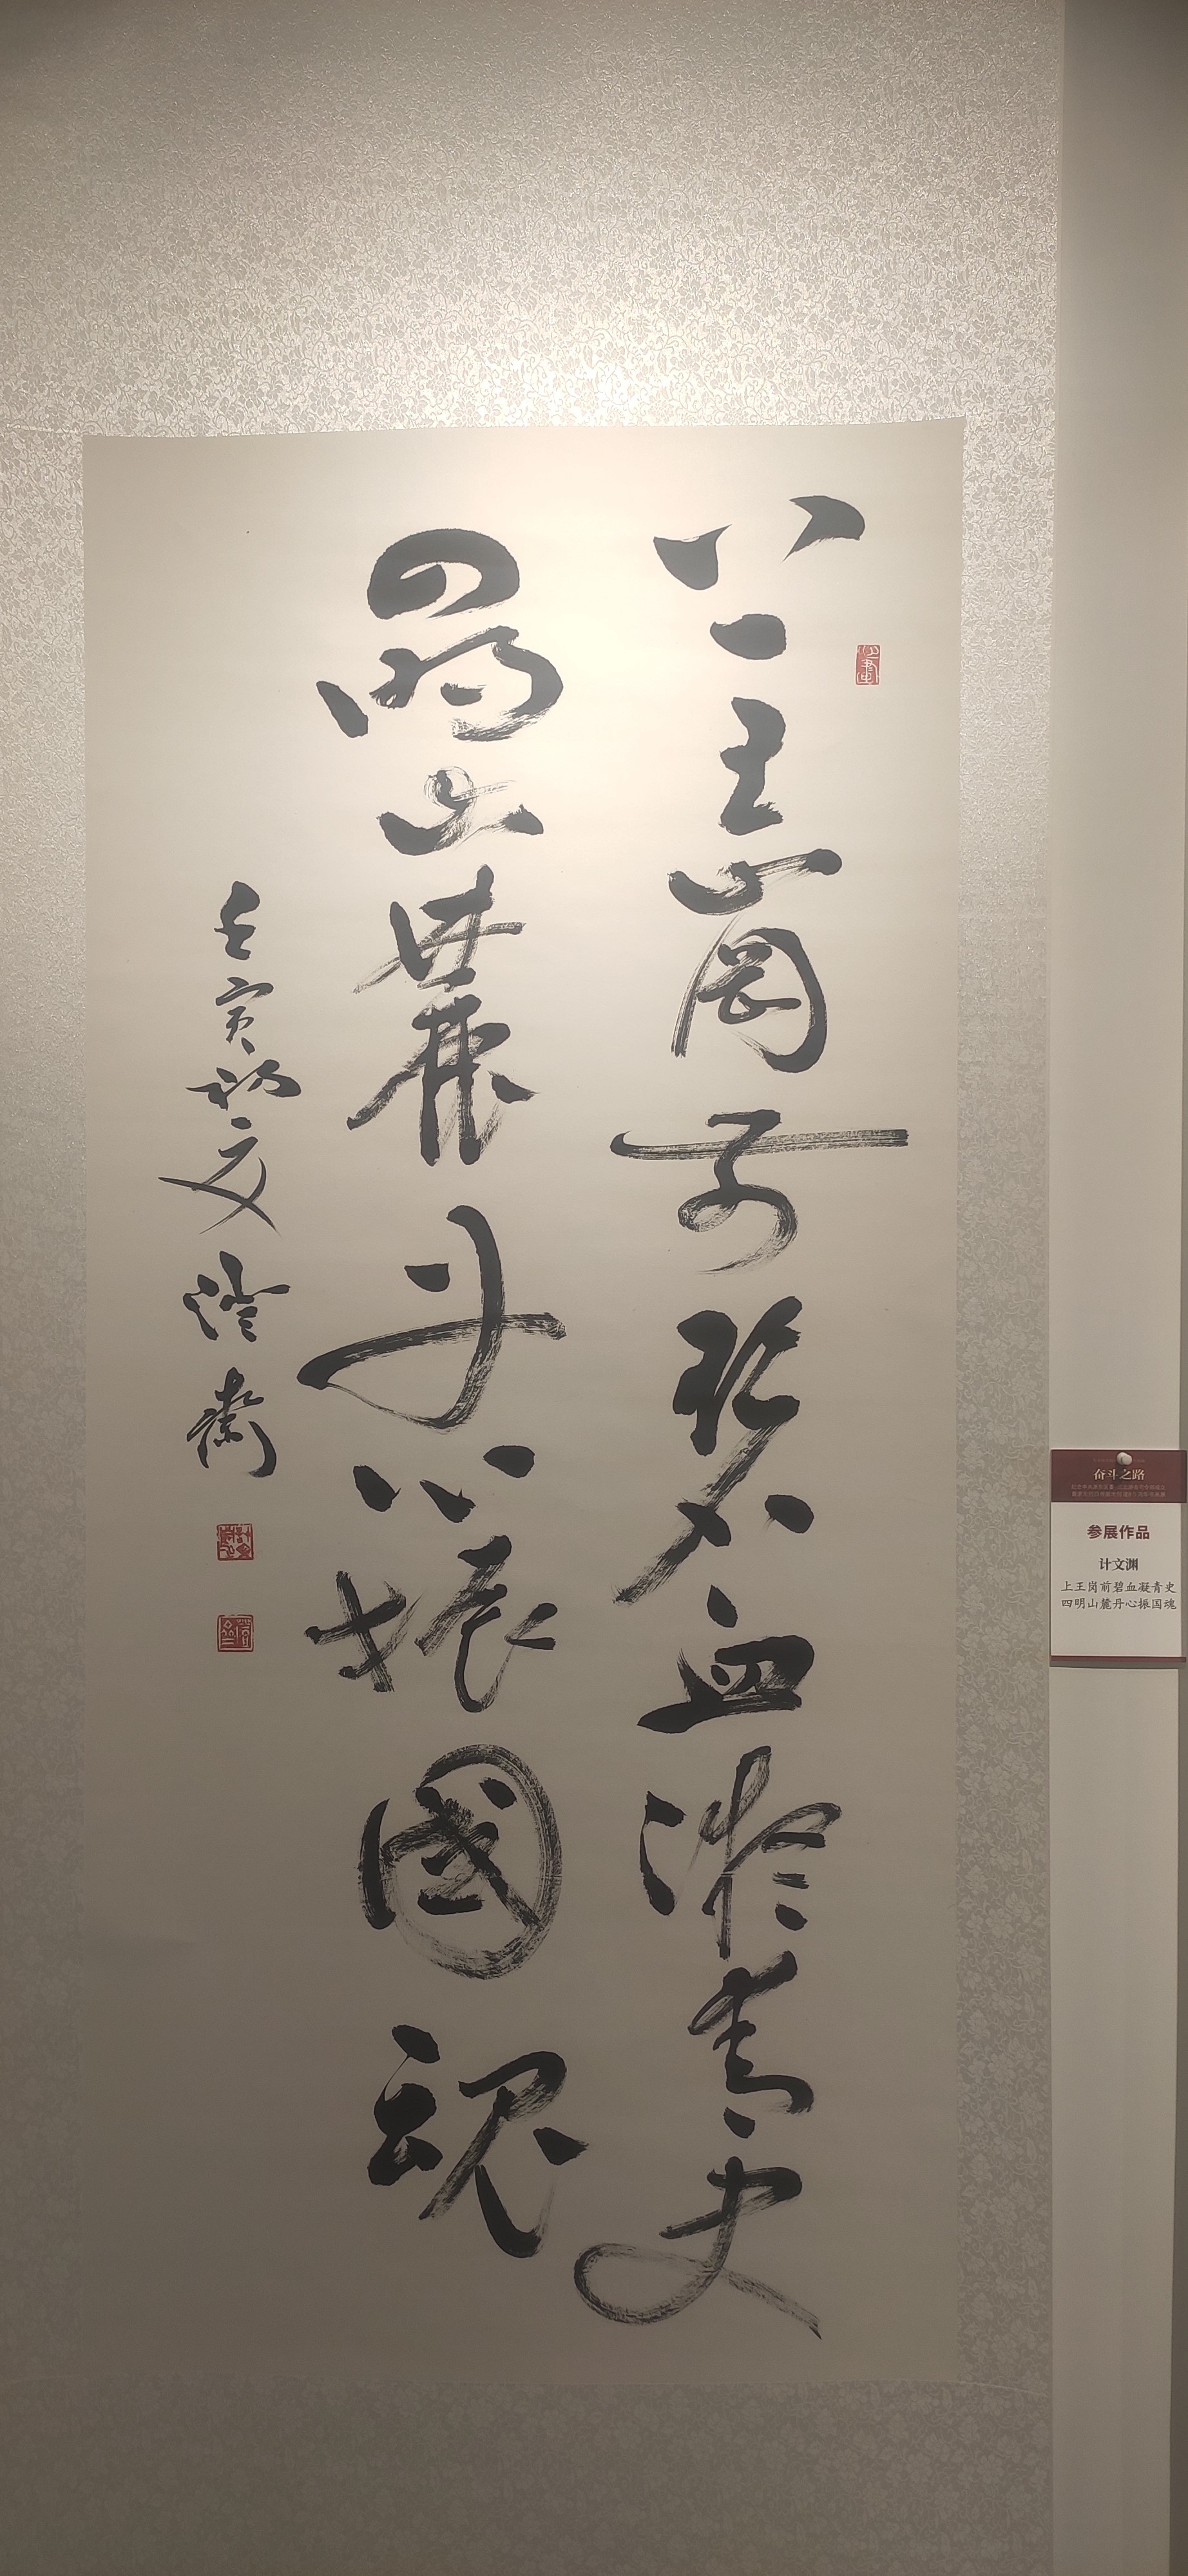 上王崗前碧血凝青史
四明山麓丹心振國魂
壬寅初夏
奋斗之路
参展作品
计文渊
上王岗前碧血凝青史
四明山麓丹心振国魂